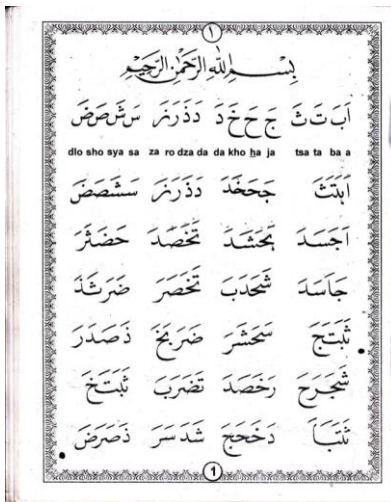 ١
بِسْمِ اللهِ الرَّحْمٰنِ الرَّحِيْمِ
اَ بَ تَ ثَ جَ حَ خَ دَ دَ ذَ رَ زَ سَ شَ صَ ضَ
dlo sho sya sa za ro dza da da kho ha ja tsa ta ba a
اَبَتَثَ جَحَخَدَ دَذَرَزَ سَشَصَضَ
اَجَسَدَ تَخَصَدَ حَضَثَرَ
جَاسَدَ شَحَدَبَ تَخَصَرَ ضَرَثَذَ
ثَبَتَجَ سَحَشَرَ ضَرَبَخَ ذَصَدَرَ
شَجَرَحَ رَخَصَدَ تَضَرَبَ ثَبَتَخَ
دَخَحَجَ شَدَسَرَ ذَصَرَضَ
1